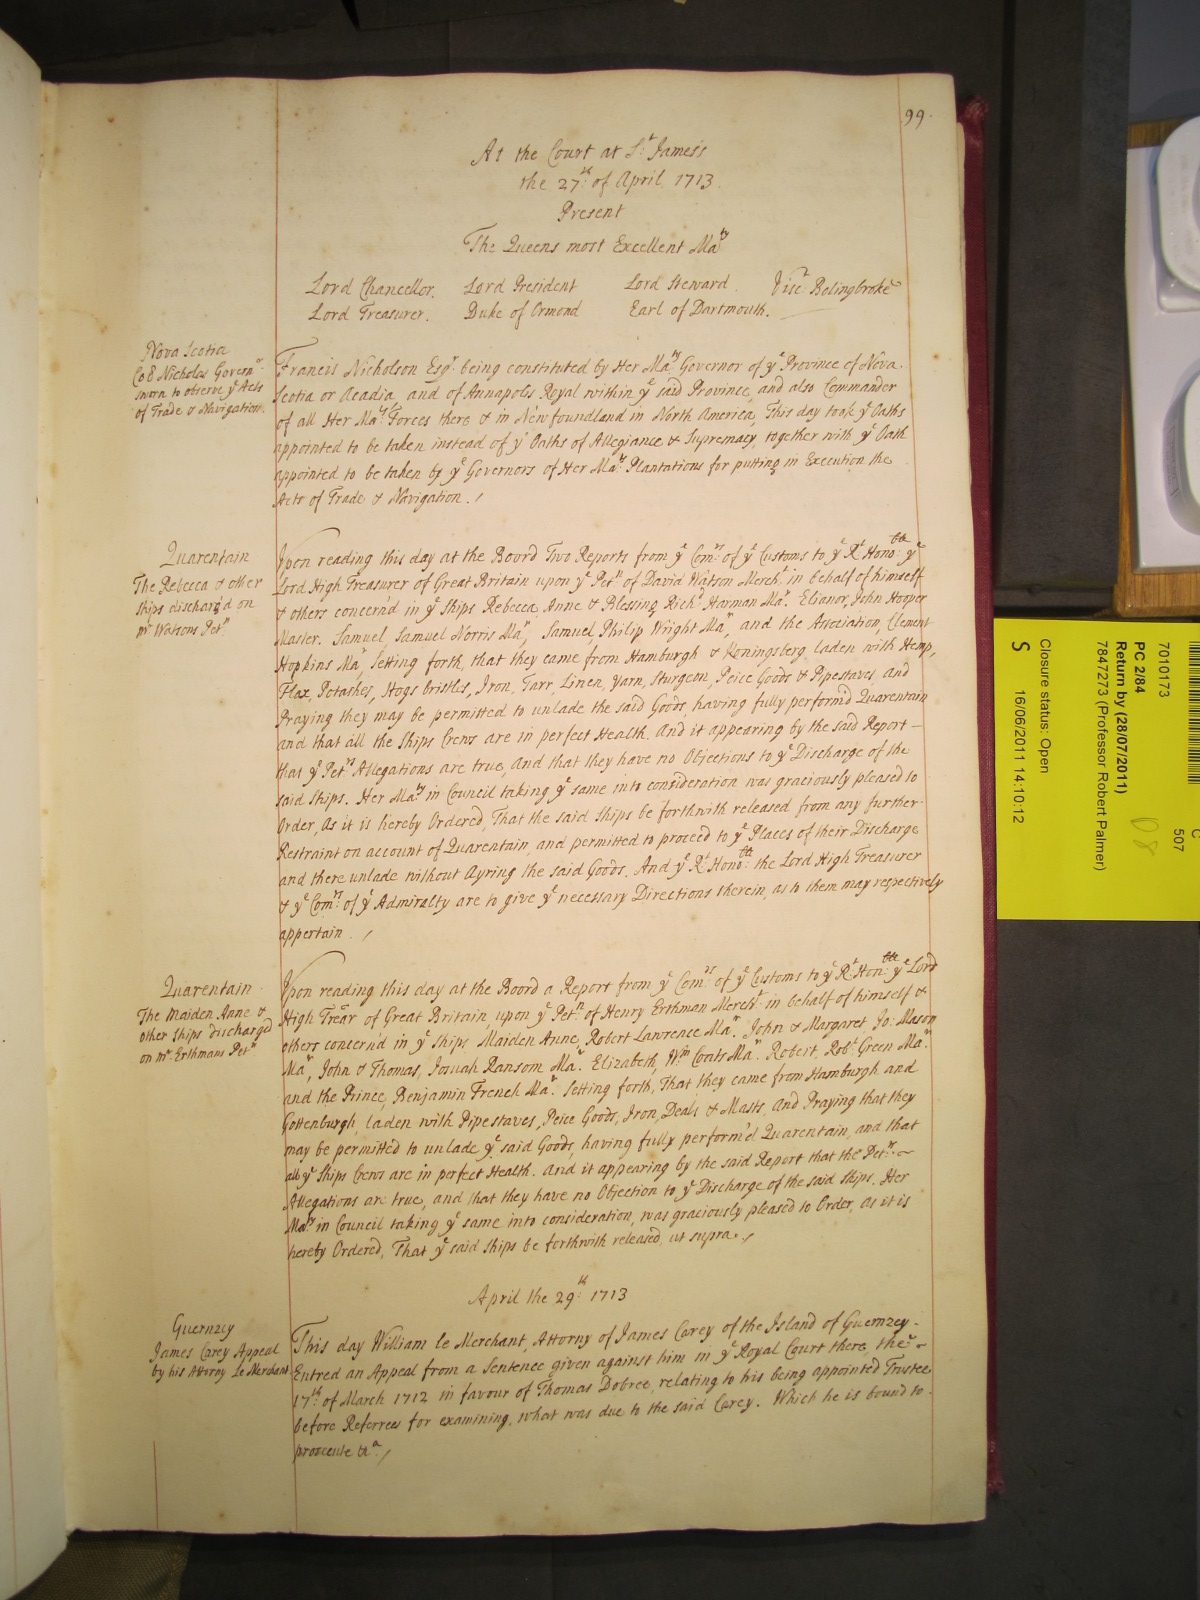 99.
At the Court at St James's
the 27th of April 1713
Present
The Queens most Excellent Maty
Lord Chancellor. Lord President Lord Steward. Visct Bolingbroke
Lord Treasurer. Duke of Ormond Earl of Dartmouth.
Nova Scotia
Coll Nicholas Governr
sworn to observe ye Acts
of Trade & Navigation.
Francis Nicholson Esqr being constituted by Her Maty Governor of ye Province of Nova
Scotia or Acadia, and of Annapolis Royal within ye said Province, and also Commander
of all Her Mats Forces there & in Newfoundland in North America, This day took ye Oaths
appointed to be taken instead of ye Oaths of Allegiance & Supremacy, together with ye Oath
appointed to be taken by ye Governors of Her Mats Plantations for putting in Execution the
Acts of Trade & Navigation. /
Quarentain
The Rebecca & other
Ships discharg'd on
mr Watsons Petn
Upon reading this day at the Board Two Reports from ye Comrs of ye Customs to ye Rt Honoble ye
Lord High Treasurer of Great Britain upon ye Petn of David Watson Mercht in behalf of himself
& others concern'd in ye Ships Rebecca, Anne & Blessing Richd Harman Mar. Elianor, John Hooper
Master. Samuel, Samuel Norris Mar, Samuel, Philip Wright Mar, and the Association, Clement
Hopkins Mar, Setting forth, that they came from Hamburgh & Koningsberg laden with Hemp,
Flax, Potashes, Hogs bristles, Iron, Tarr, Linen, yarn, Sturgeon, Peice Goods & Pipestaves, and
Praying they may be permitted to unlade the said Goods, having fully perform'd Quarentain
and that all the Ships Crews are in perfect Health. And it appearing by the said Report
that ye Petrs Allegations are true, And that they have no Objections to ye Discharge of the
said Ships. Her Maty in Council taking ye same into consideration was graciously pleased to
Order, As it is hereby Ordered, That the said Ships be forthwith released from any further
Restraint on account of Quarentain, and permitted to proceed to ye Places of their Discharge
and there unlade without Ayring the said Goods. And ye Rt Honoble the Lord High Treasurer
& ye Comrs of ye Admiralty are to give ye necessary Directions therein, as to them may respectively
appertain. /
Quarentain
The Maiden Anne &
other Ships discharged
on mr Erthmans Petn
Upon reading this day at the Board a Report from ye Comrs of ye Customs to ye Rt Honble ye Lord
High Trear of Great Britain, upon ye Petn of Henry Erthman Mercht in behalf of himself &
others concern'd in ye Ships Maiden Anne, Robert Lawrence Mar. John & Margaret, Jo: Mason
Mar, John & Thomas, Josuah Ransom Mar. Elizabeth, Wm Coats Mar. Robert, Robt Green Mar.
and the Prince, Benjamin French Mar. Setting forth, That they came from Hamburgh and
Gottenburgh, laden with Pipestaves, Peice Goods, Iron, Deals & Masts, And Praying that they
may be permitted to unlade ye said Goods, having fully perform'd Quarentain, and that
all ye Ships Crews are in perfect Health. And it appearing by the said Report that the Petrs
Allegations are true, and that they have no Objection to ye Discharge of the said Ships, Her
Maty in Council taking ye same into consideration, was graciously pleased to Order, as it is
hereby Ordered, That ye said Ships be forthwith released, ut supra. /
April the 29th 1713
Guernzey
James Carey Appeal
by his Attorny Le Merchant
This day William le Merchant, Attorny of James Carey of the Island of Guernzey
Entred an Appeal from a Sentence given against him in ye Royal Court there, the
17th of March 1712 in favour of Thomas Dobree, relating to his being appointed Trustee
before Referrees for examining what was due to the said Carey. Which he is bound to
prosecute &ca. /
7010173
PC 2/84
Return by (28/07/2011)
7847273 (Professor Robert Palmer)
Closure status: Open
S 16/06/2011 14:10:12
C
507
D8